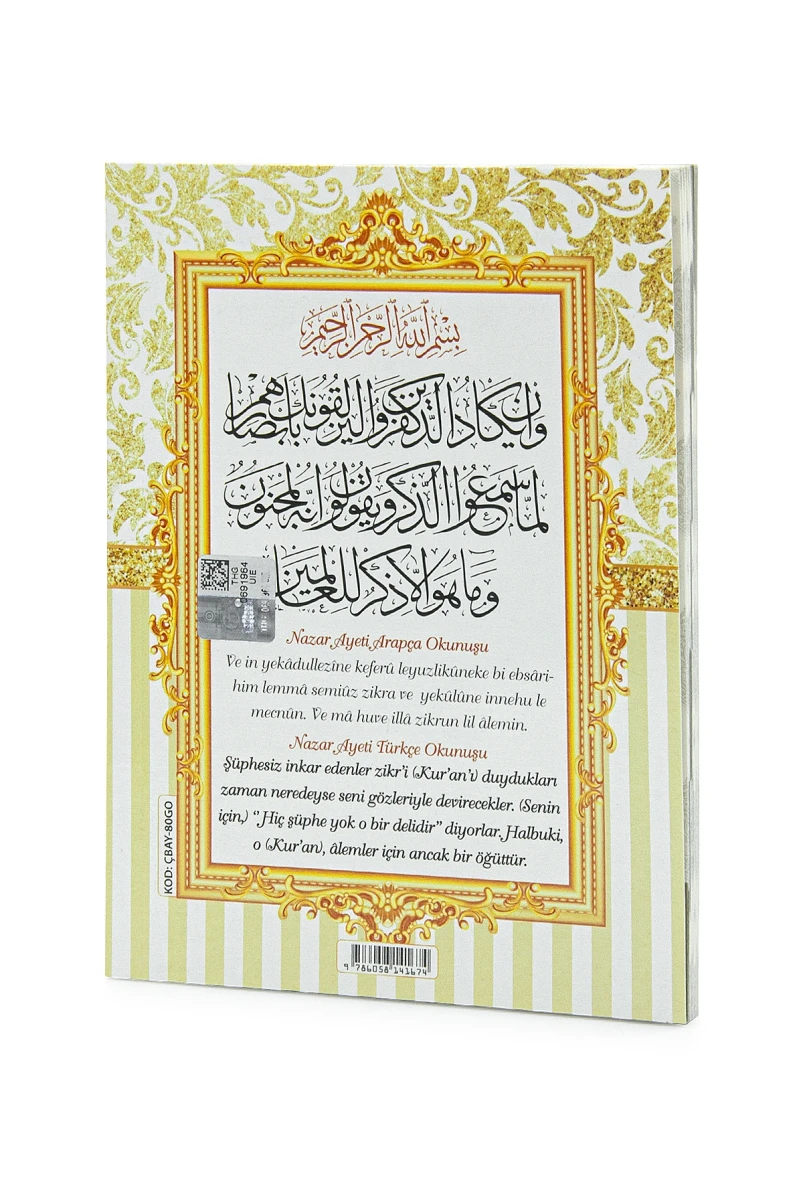 بسم الله الرحمن الرحيم
وان يكاد الذين كفروا ليزلقونك بابصارهم
لما سمعوا الذكر ويقولون انه لمجنون
وما هو الا ذكر للعالمين
THG
0691964
UIE
Nazar Ayeti Arapça Okunuşu
Ve in yekâdullezîne keferû leyuzlikûneke bi ebsâri-
him lemmâ semiûz zikra ve yekûlûne innehu le
mecnûn. Ve mâ huve illâ zikrun lil âlemin.
Nazar Ayeti Türkçe Okunuşu
Şüphesiz inkar edenler zikr'i (Kur'an'ı) duydukları
zaman neredeyse seni gözleriyle devirecekler. (Senin
için,) “Hiç şüphe yok o bir delidir” diyorlar. Halbuki,
o (Kur'an), âlemler için ancak bir öğüttür.
KOD: ÇBAY-80GO
9 786058 141674